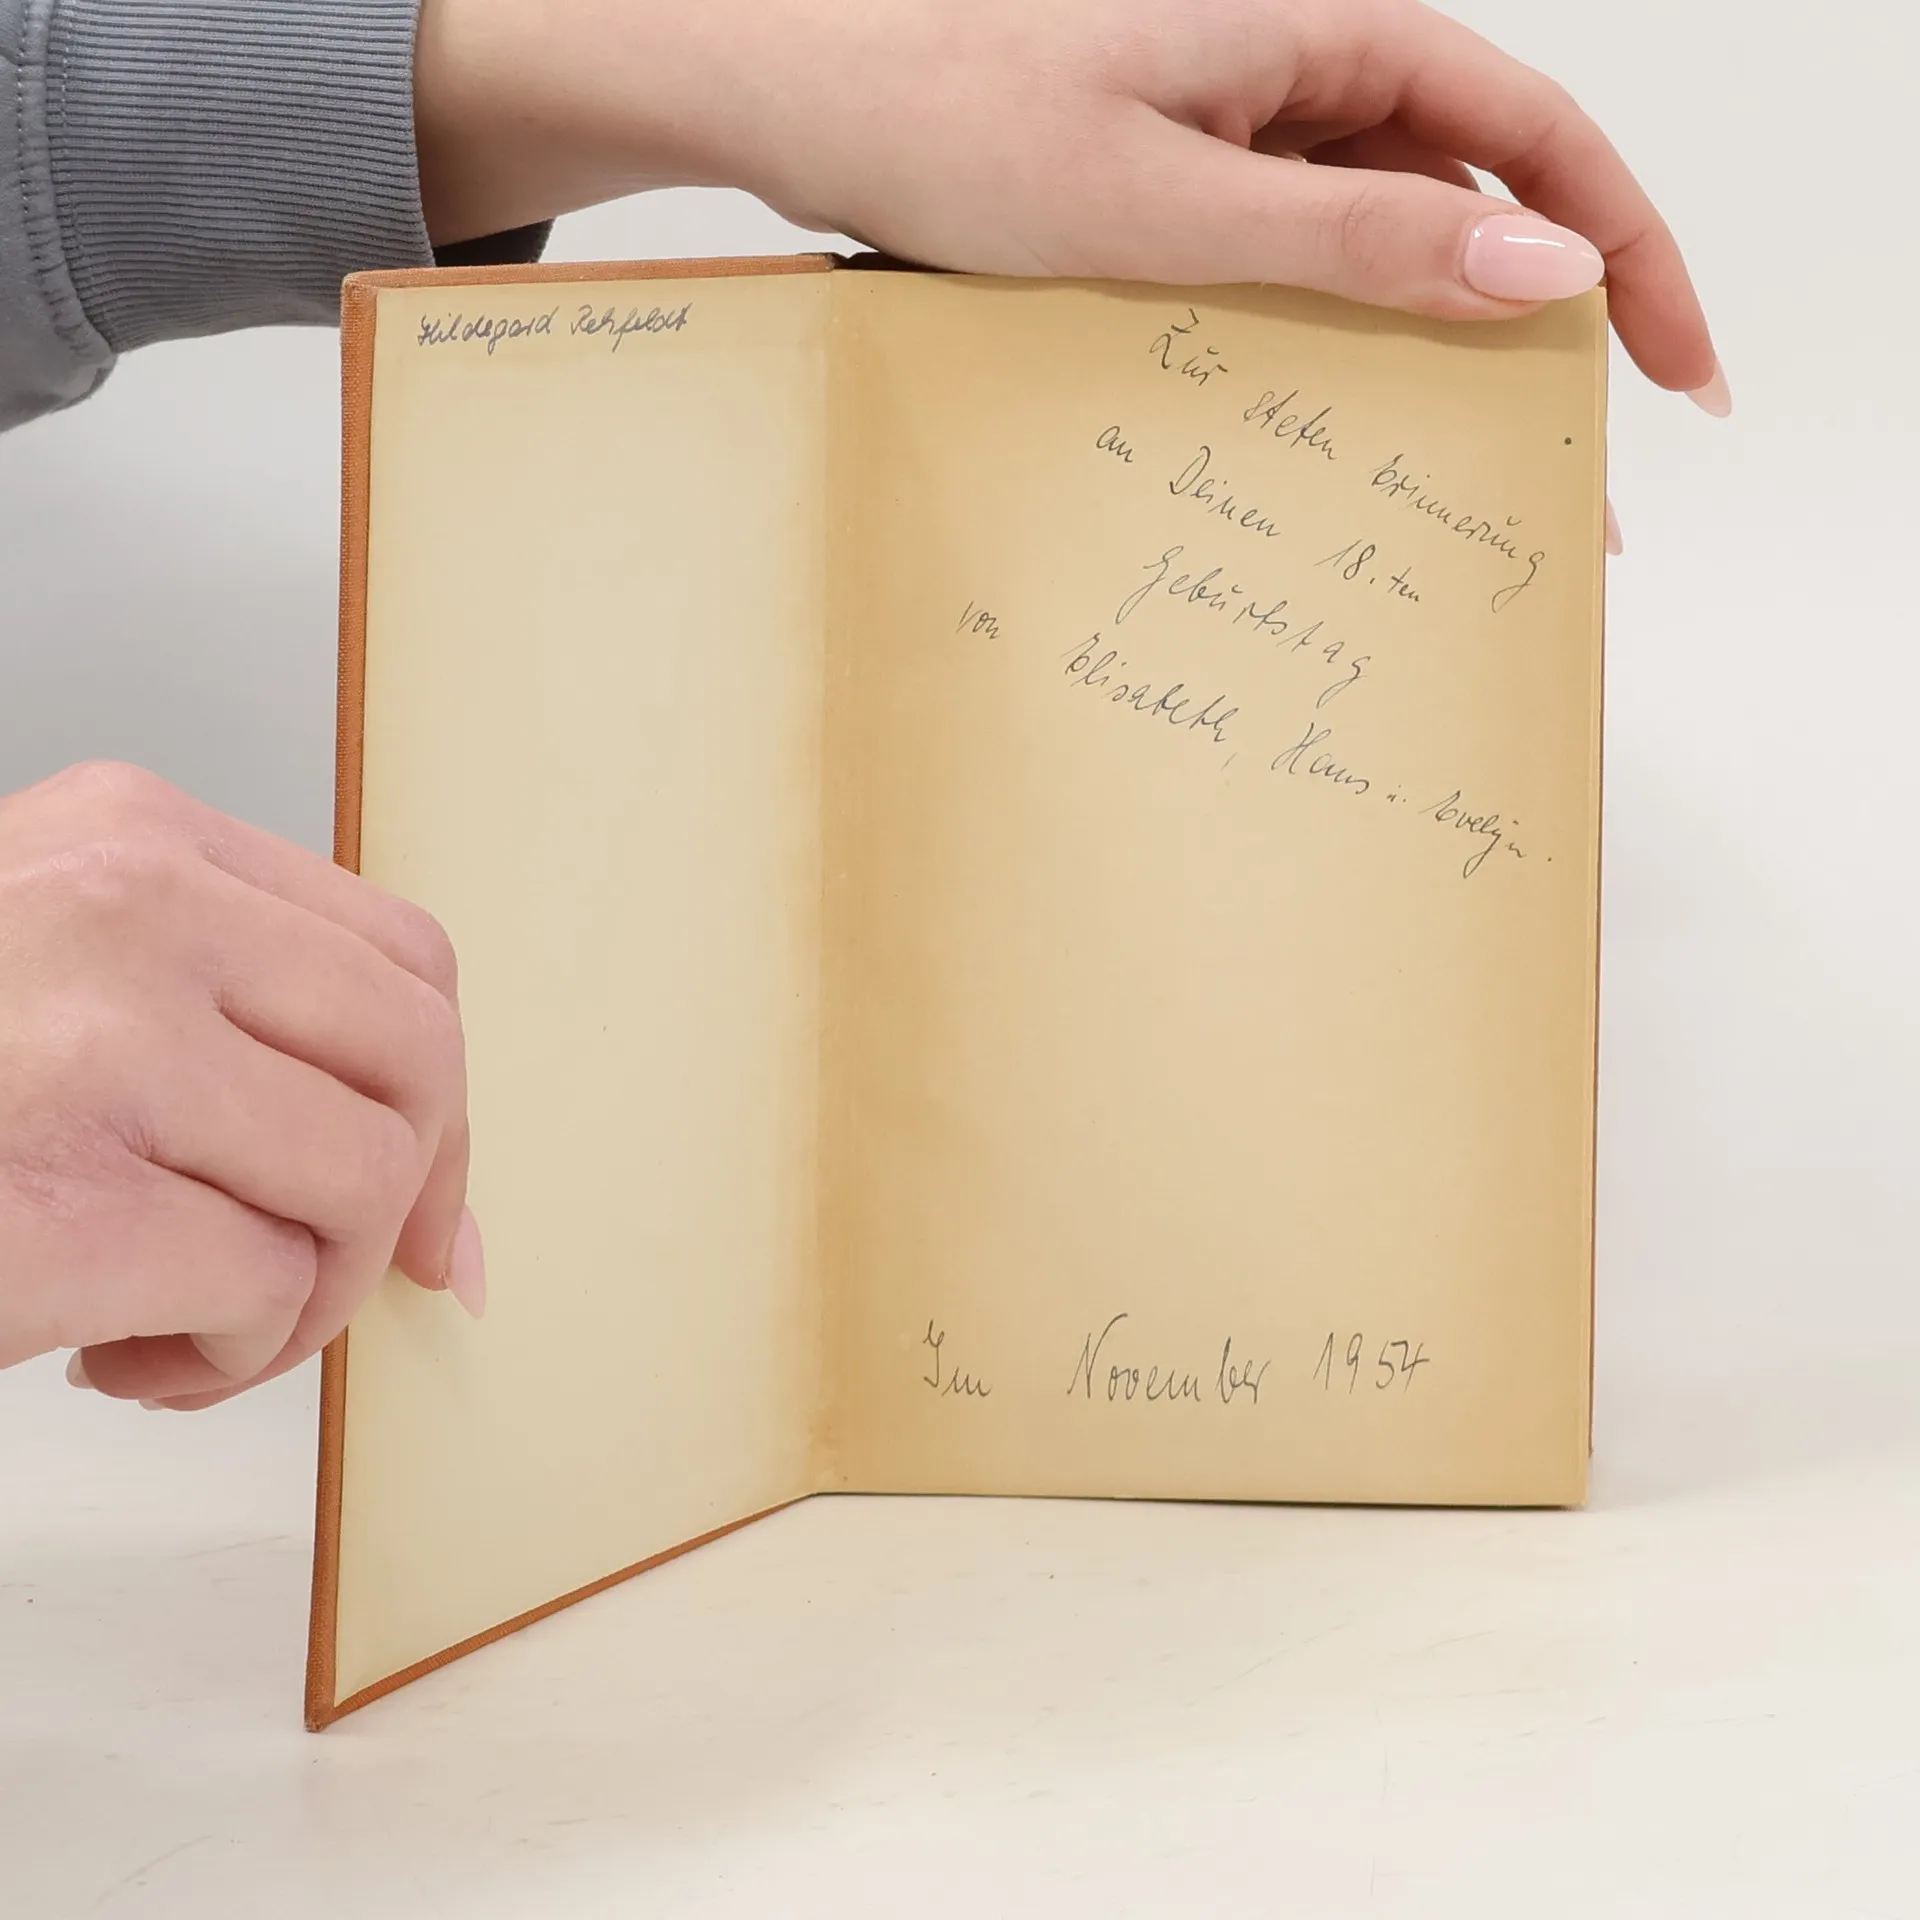 Hildegard Rehfeldt
Zur steten Erinnerung
an Deinen 18.ten
Geburtstag
von Elisabeth, Hans u. Evelyn.
Im November 1954